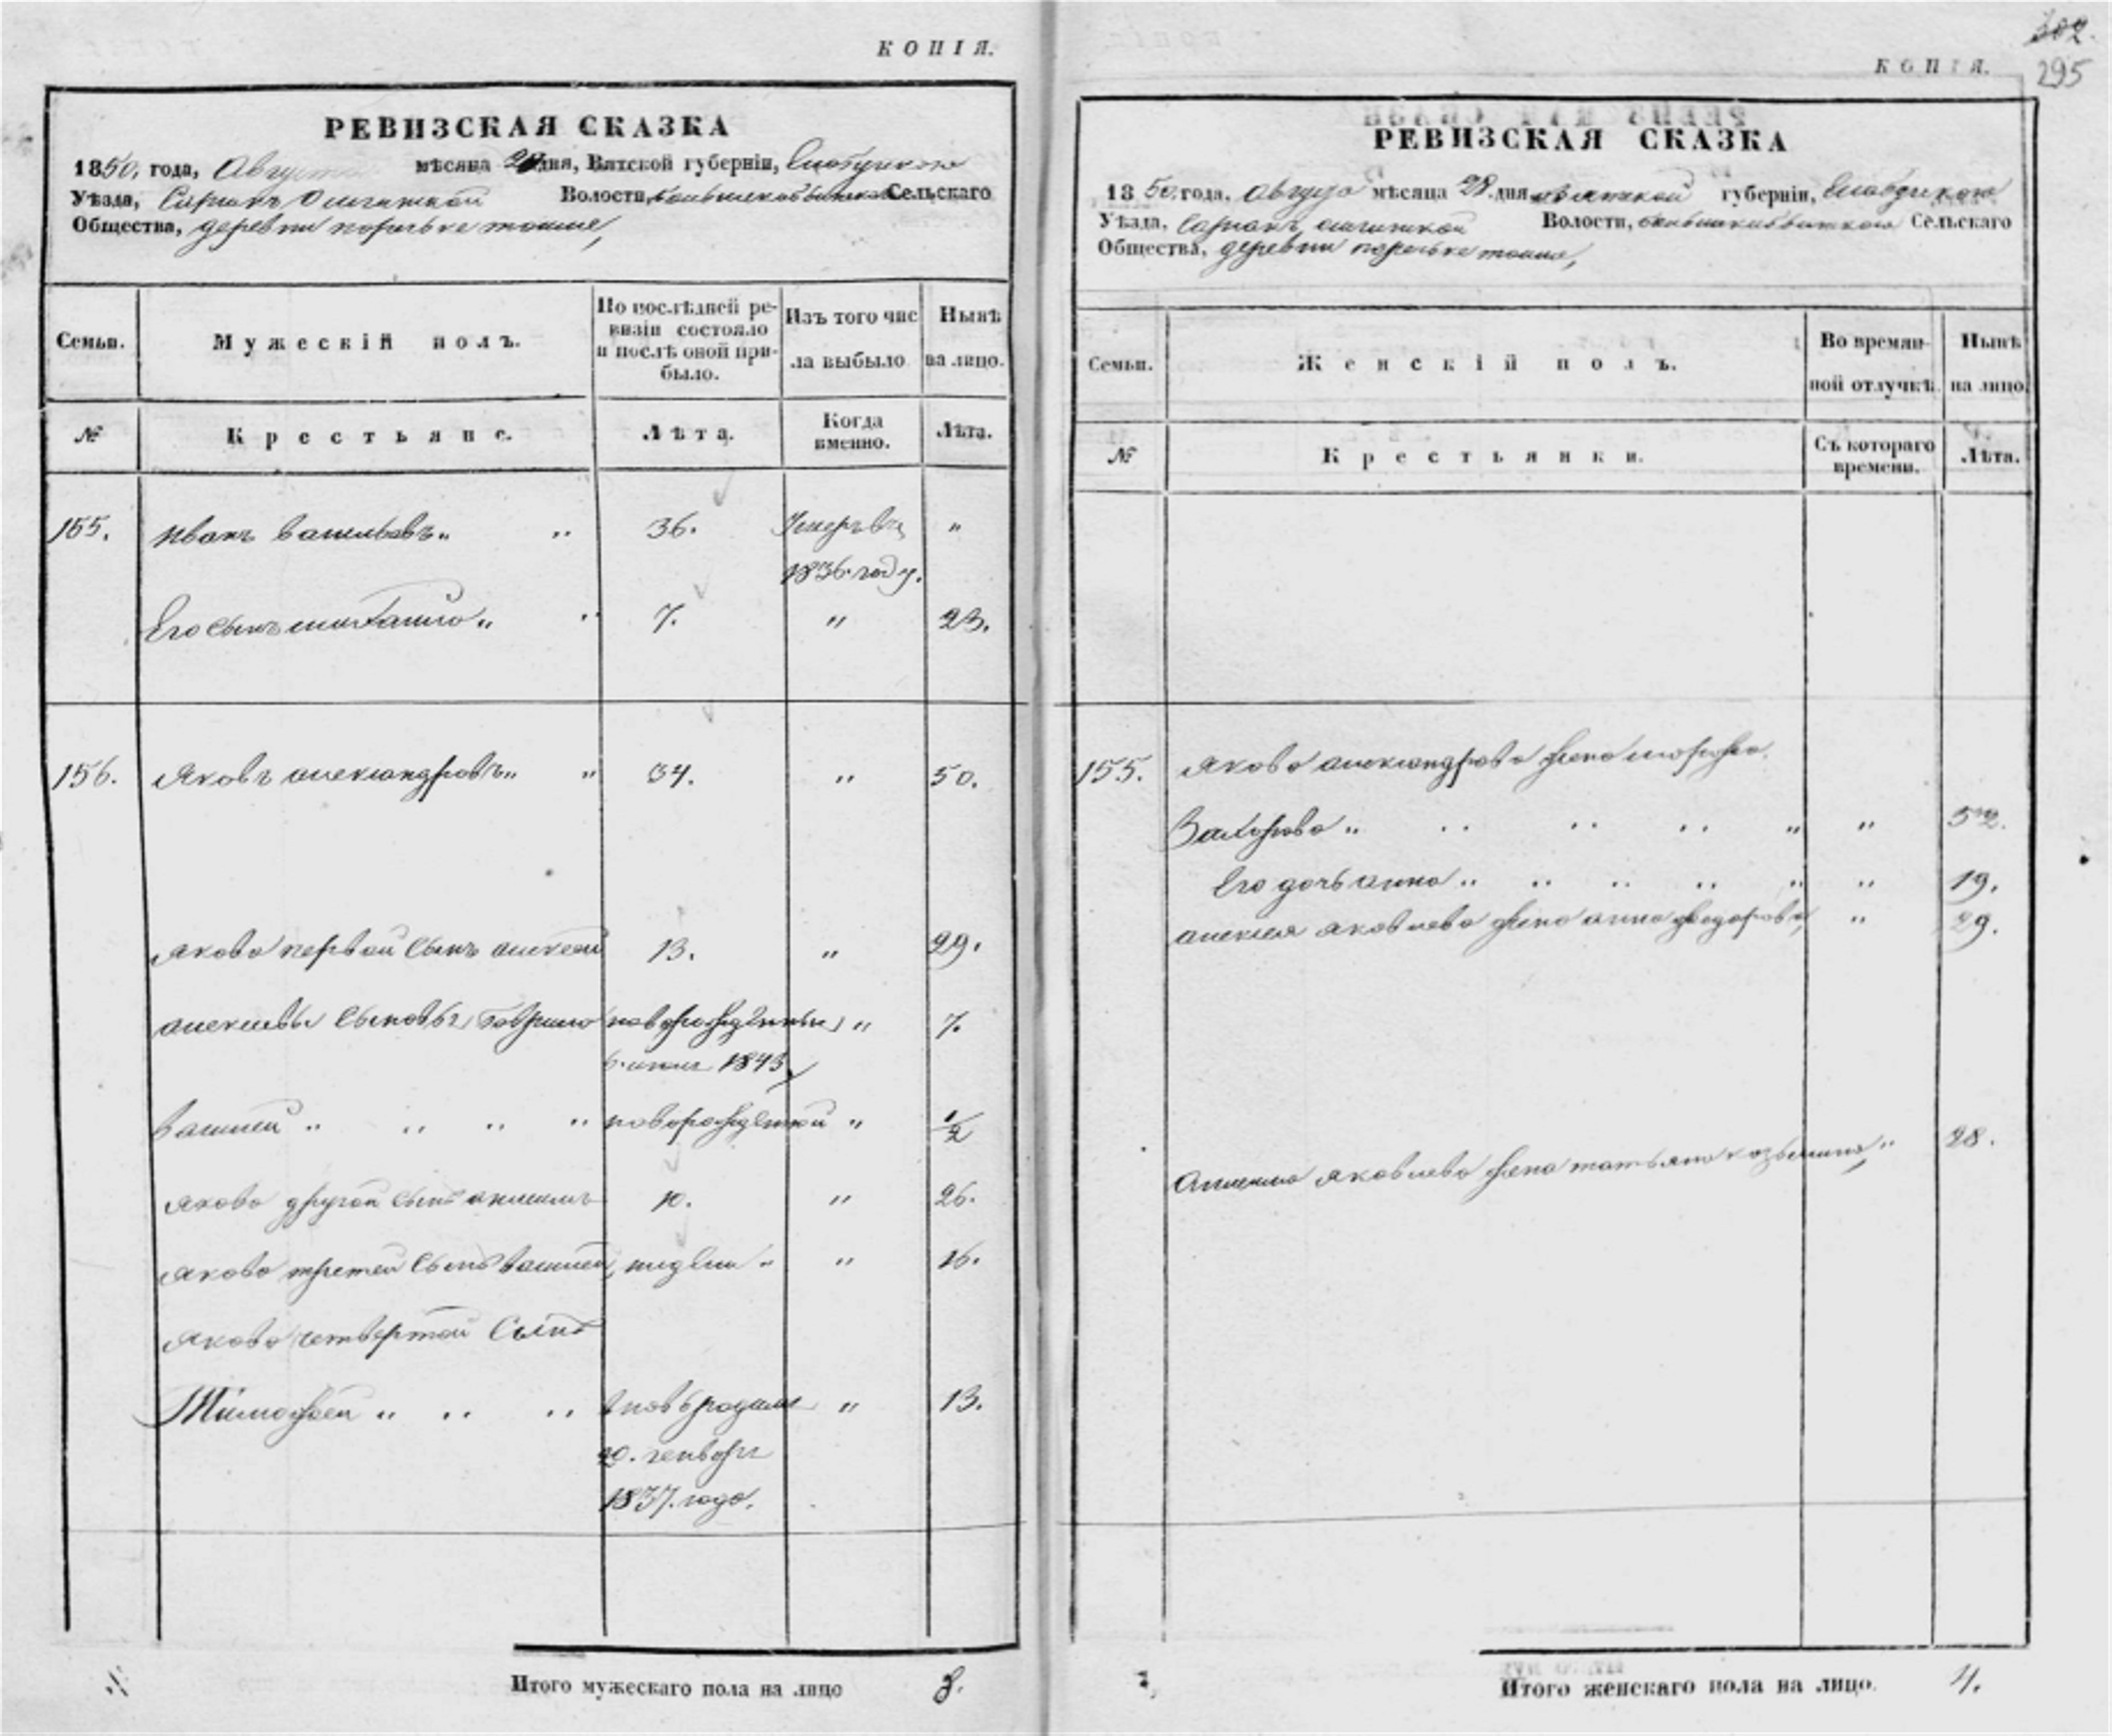 КОПІЯ.
РЕВИЗСКАЯ СКАЗКА
1850, года, Августа мѣсяца 28 дня, Вятской губерніи,
Уѣзда, Волости, Сельскаго
Общества, деревни
Семьи. Мужескій полъ. По послѣдней ре-
визіи состояло
и послѣ оной при-
было. Изъ того чис
ла выбыло Нынѣ
на лицо.
№ Крестьяне. Лѣта. Когда
именно. Лѣта.
155. Иванъ Васильевъ „ „ 36. Умеръ въ „
1836. году.
Его сынъ „ „ 7. „ 23.
156. Яковъ александровъ „ „ 34. „ 50.
Якова первой сынъ алексей 13. „ 29.
алексеевы сыновья Гаврило новорожденный „ 7.
6. 1843
Василей „ „ „ „ новорожденной „ 1/2
Якова другой сынъ 10. „ 26.
Якова третей сынъ Василей, недели „ „ 16.
Якова четвертой сынъ
Тимофей „ „ „ вновь родился „ 13.
20. генваря
1837. года.
Итого мужескаго пола на лицо 8.
302.
295
КОПІЯ.
РЕВИЗСКАЯ СКАЗКА
1850. года, августа мѣсяца 28. дня вятской губерніи,
Уѣзда, Волости, Сельскаго
Общества, деревни
Семьи. Женскій полъ. Во времян-
ной отлучкѣ. Нынѣ
на лицо
№ Крестьянки. Съ котораго
времени. Лѣта.
155. Якова александрова жена марфа
Захарова „ „ „ „ „ „ 52.
Его дочь анна „ „ „ „ „ „ 19.
алексея яковлева жена анна федорова, „ 29.
яковлева жена татьяна козьмина, „ 28.
Итого женскаго пола на лицо. 4.